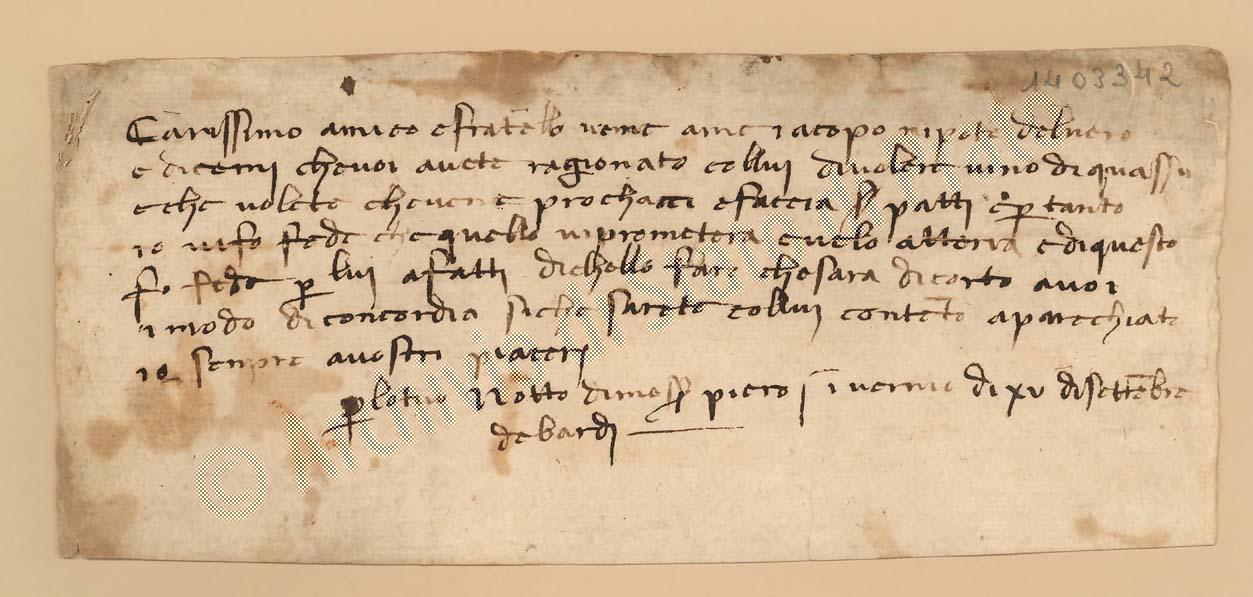 1403342
Carissimo amico efratello vene ame iacopo nipote delnero
e dicemi chevoi avete ragionato collui divolere vino diquassu
eche volete chevene prochacci efaccia patti e p tanto
io vifo fede che quello viprometera evelo atterra ediquesto
fo fede p lui afatti dichello fare chesara dicorto avoi
imodo diconcordia siche sarete collui contento aparechiato
io senpre avostri piaceri
p lotuo Notto dimess piero i vernio di xv disettenbre
debardi
© Archivio di Stato